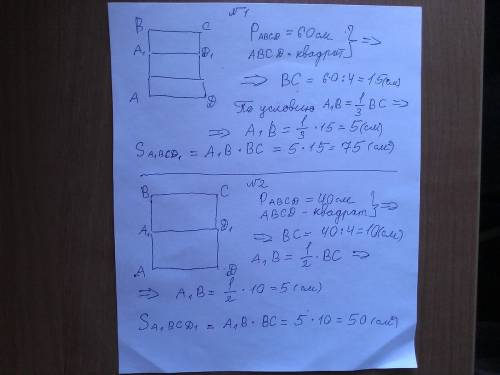 №1
B C
A₁ D₁
A D
P ABCD = 60см
ABCD - квадрат } =>
=> BC = 60:4 = 15(см)
По условию A₁B = 1/3 BC =>
=> A₁B = 1/3 · 15 = 5(см)
S A₁BCD₁ = A₁B · BC = 5 · 15 = 75 (см²)
№2
B C
A₁ D₁
A D
P ABCD = 40см
ABCD - квадрат } =>
=> BC = 40:4 = 10(см)
A₁B = 1/2 · BC =>
=> A₁B = 1/2 · 10 = 5(см)
S A₁BCD₁ = A₁B · BC = 5 · 10 = 50(см²)